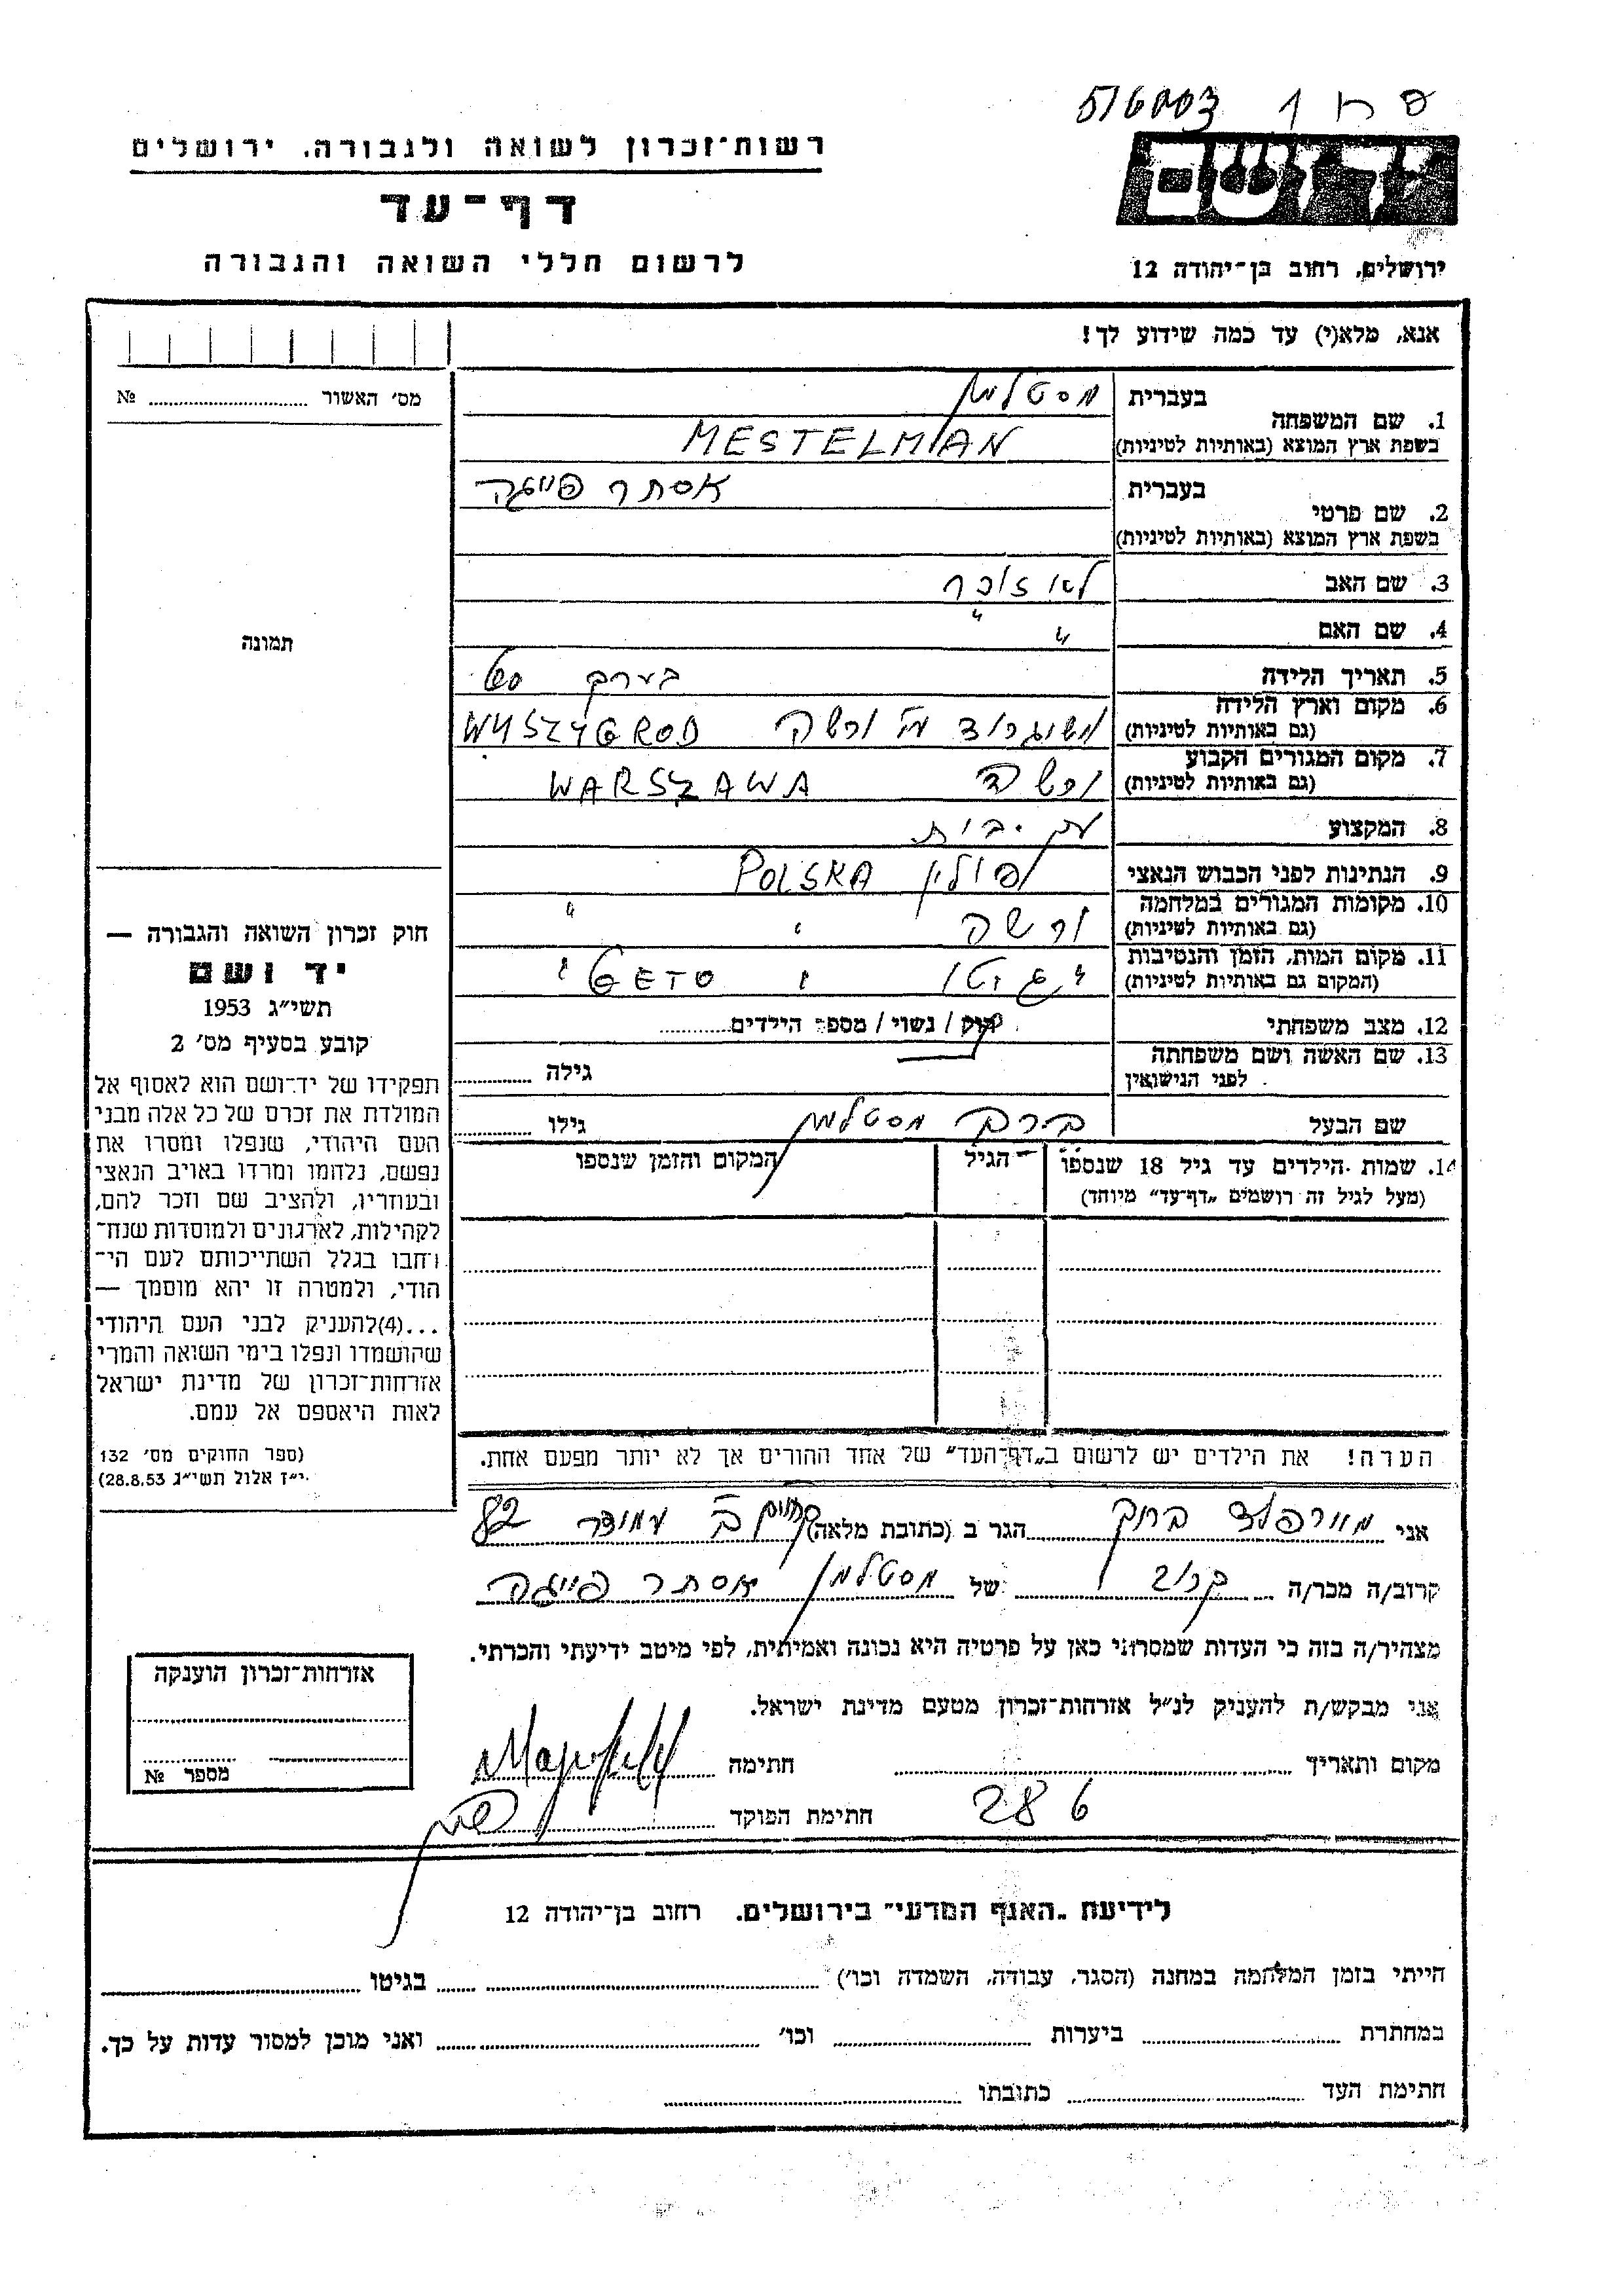 516003 1 פ ח
רשות־זכרון לשואה ולגבורה, ירושלים
דף־עד
לרשום חללי השואה והגבורה
יד ושם
ירושלים, רחוב בן־יהודה 12
אנא, מלא(י) עד כמה שידוע לך!
מס׳ האשור № 
1. שם המשפחה
בעברית מסטלמן
בשפת ארץ המוצא (באותיות לטיניות) MESTELMAN
2. שם פרטי
בעברית אסתר פייגה
בשפת ארץ המוצא (באותיות לטיניות)
3. שם האב לא זוכר
4. שם האם " "
5. תאריך הלידה בערך 60
6. מקום וארץ הלידה
(גם באותיות לטיניות) וישוגרוד מ׳ ורשה WYSZYGROD
7. מקום המגורים הקבוע
(גם באותיות לטיניות) ורשה WARSZAWA
8. המקצוע עק׳ בית
9. הנתינות לפני הכבוש הנאצי פולין POLSKA
10. מקומות המגורים במלחמה
(גם באותיות לטיניות) ורשה " "
11. מקום המות, הזמן והנסיבות
(המקום גם באותיות לטיניות) " גטו " GETO "
12. מצב משפחתי רוק / נשוי / מספר הילדים
13. שם האשה ושם משפחתה
לפני הנישואין גילה
שם הבעל מסטלמן גילו
14. שמות הילדים עד גיל 18 שנספו הגיל המקום והזמן שנספו
(מעל לגיל זה רושמים „דף־עד״ מיוחד)
הערה! את הילדים יש לרשום ב„דף־העד״ של אחד ההורים אך לא יותר מפעם אחת.
תמונה
חוק זכרון השואה והגבורה —
יד ושם
תשי״ג 1953
קובע בסעיף מס׳ 2
תפקידו של יד־ושם הוא לאסוף אל
המולדת את זכרם של כל אלה מבני
העם היהודי, שנפלו ומסרו את
נפשם, נלחמו ומרדו באויב הנאצי
ובעוזריו, ולהציב שם וזכר להם,
לקהילות, לארגונים ולמוסדות שנח־
רחבו בגלל השתייכותם לעם הי־
הודי, ולמטרה זו יהא מוסמך —
...(4)להעניק לבני העם היהודי
שהושמדו ונפלו בימי השואה והמרי
אזרחות־זכרון של מדינת ישראל
לאות היאספם אל עמם.
(ספר החוקים מס׳ 132
י״ז אלול תשי״ג 28.8.53)
אני ברוך הגר ב (כתובת מלאה) 82
קרוב/ה מכר/ה קרוב של מסטלמן אסתר פייגה
מצהיר/ה בזה כי העדות שמסרתי כאן על פרטיה היא נכונה ואמיתית, לפי מיטב ידיעתי והכרתי.
אני מבקש/ת להעניק לנ״ל אזרחות־זכרון מטעם מדינת ישראל.
מקום ותאריך חתימה
28 6 חתימת הפוקד
אזרחות־זכרון הוענקה
מספר №
לידיעת „האגף המדעי״ בירושלים. רחוב בן־יהודה 12
הייתי בזמן המלחמה במחנה (הסגר, עבודה, השמדה וכו׳) בגיטו
במחתרת ביערות וכו׳ ואני מוכן למסור עדות על כך.
חתימת העד כתובתו